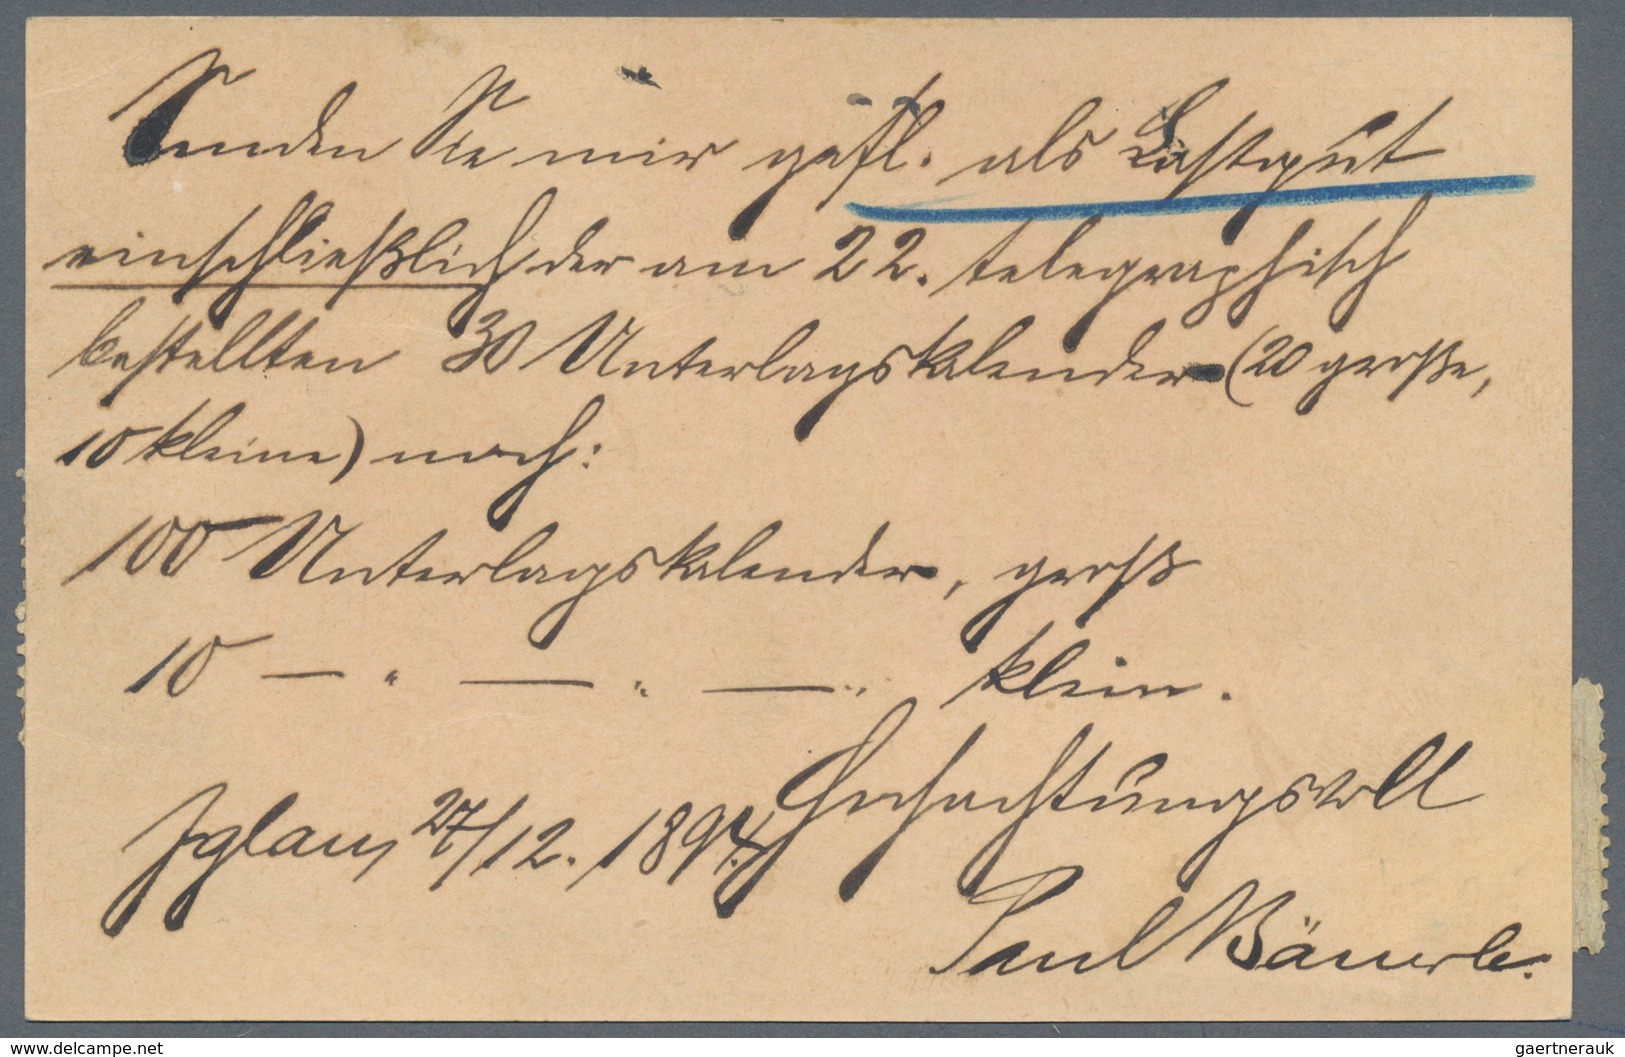 Senden Sie mir gefl. als Eilgut
einschließlich der am 22. telegraphisch
bestellten 30 Unterlagskalender (20 große,
10 kleine) noch:
100 Unterlagskalender, groß
10 — " — " — " klein.
Hochachtungsvoll
Iglau, 27/12. 1894.
Paul Bäuerle.
www.delcampe.net
gaertnerauk